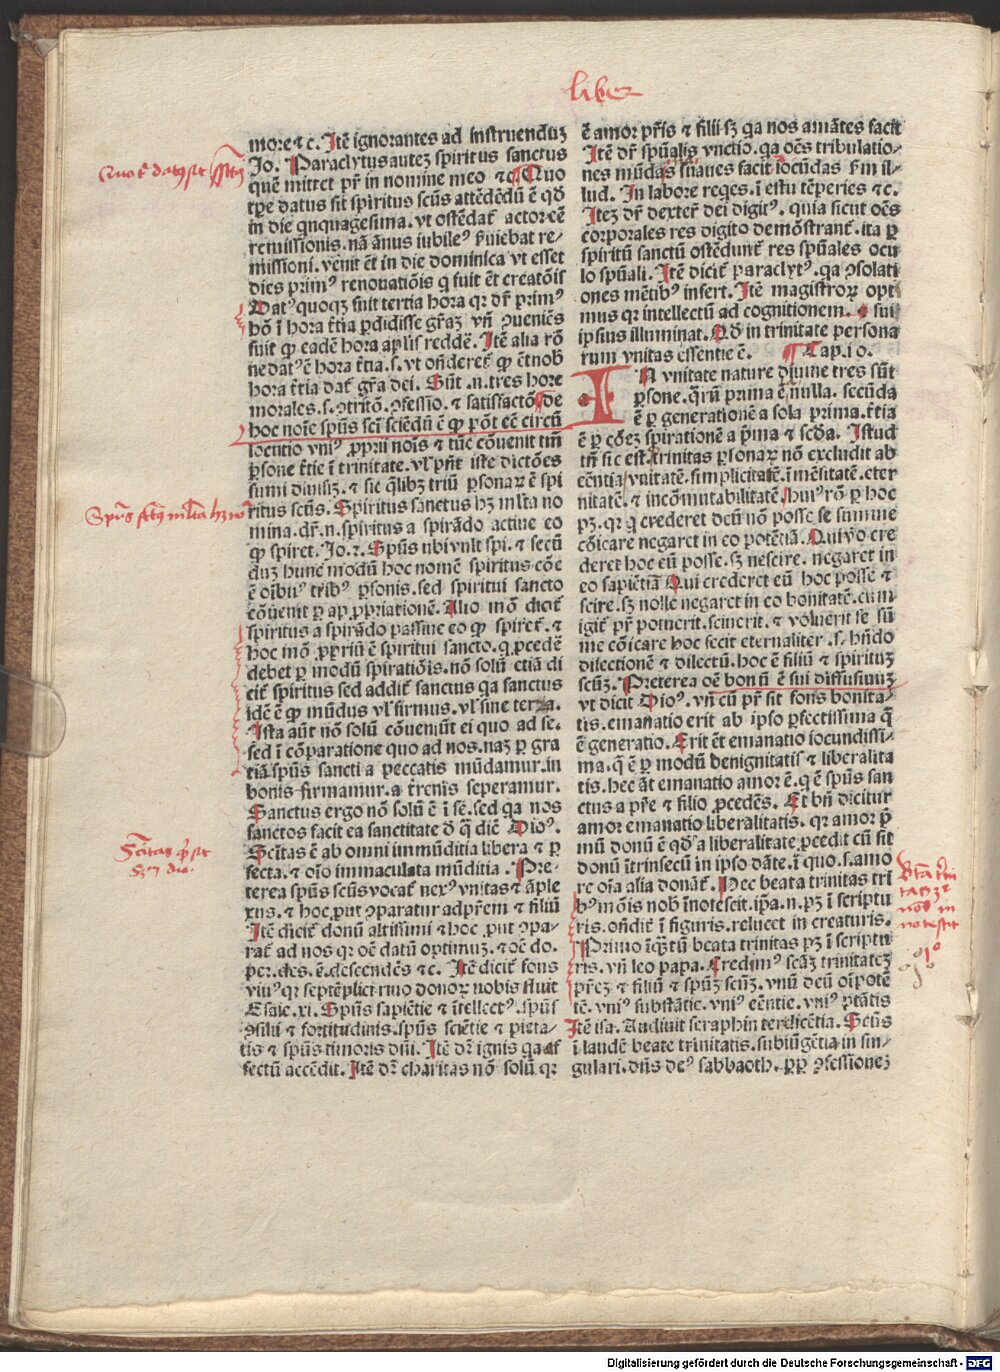 liber
more ⁊ c. Itē ignorantes ad instruenduꝫ
Jo. Paraclytus auteꝫ spiritus sanctus
quē mittet pr̄ in nomine meo ⁊ c̄ Quo
tꝑe datus sit spiritus scūs attēdēdū ē qđ
in die qnquagesima. vt ostēdat᷑ actor eē
remissionis. nā ānus iubileꝰ ꝓuiebat re⸗
missioni. venit ēt in die dominica vt esset
dies primꝰ renouatiōis q fuit ēt creatōis
Datꝰ quoqꝫ fuit tertia hora qr dr̄ primꝰ
hō ī hora t̄tia ꝑdidisse gr̄aꝫ vn̄ ꝯueniēs
fuit ꝙ eadē hora aplis̄ reddē. Itē alia rō
ne datꝰ ē hora t̄tia. s. vt on̄deret᷑ ꝙ ēt nob̄
hora t̄tia dat᷑ gr̄a dei. Sūt .n. tres hore
morales. s. ꝯtritō. ꝯfessio. ⁊ satisfactō De
hoc noīe spūs sci sciēdū ē ꝙ pōt eē circū
locutio vniꝰ ꝓprii nois̄ ⁊ tūc cōuenit tm̄
ꝑsone t̄tie ī trinitate. vl pn̄t iste dictōes
sumi diuisiꝫ. ⁊ sic qlibꝫ triū ꝑsonaꝝ ē spi
ritus scūs. Spiritus sanctus hꝫ ml̄ta no
mina. dr̄. n. spiritus a spirādo actiue eo
ꝙ spiret. Jo. 2. Spūs vbi vult spi. ⁊ secū
duꝫ hunc modū hoc nomē spiritus cōe
ē oībꝰ tribꝰ ꝑsonis. sed spiritui sancto
cōuenit ꝑ apꝓpriationē. Alio mō dicit᷑
spiritus a spirādo passiue eo ꝙ spiret᷑. ⁊
hoc mō ꝓpriū ē spiritui sancto. q ꝓcedē
debet ꝑ modū spiratiōis. nō solū etiā di
cit᷑ spiritus sed addit᷑ sanctus qa sanctus
idē ē ꝙ mūdus vl firmus. vl sine terra.
Ista aūt nō solū cōueniūt ei quo ad se.
sed ī cōparatione quo ad nos. naꝫ ꝑ gra
tiā spūs sancti a peccatis mūdamur. in
bonis firmamur. a t̄renis seperamur.
Sanctus ergo nō solū ē ī sē. sed qa nos
sanctos facit ea sanctitate đ q̄ dic̄ Dioꝰ.
Scītas ē ab omni immūditia libera ⁊ ꝑ
fecta. ⁊ oīo immaculata mūditia. Pre⸗
terea spūs scūs vocat᷑ nexꝰ vnitas ⁊ āple
xus. ⁊ hoc ꝓut ꝯparatur ad prēm ⁊ filiū
Itē dicit᷑ donū altissimi ⁊ hoc ꝓut ꝯpa⸗
rat᷑ ad nos qr oē datū optimuꝫ. ⁊ oē do.
per. des. ē. descendēs ⁊ c. Itē dicit᷑ fons
viuꝰ qr septēplici riuo donoꝝ nobis fluit
Esaie. xi. Spūs sapiētie ⁊ ītellectꝰ. spūs
ꝯsilii ⁊ fortitudinis. spūs sciētie ⁊ pieta⸗
tis ⁊ spūs timoris dn̄i. Itē dr̄ ignis qa af
fectū accēdit. Itē dr̄ charitas nō solū qꝛ
ē amor pr̄is ⁊ filii sꝫ qa nos amātes facit
Itē dr̄ spūalis vnctio. qa oēs tribulatio⸗
nes mūdas suaues facit iocūdas ẜm il⸗
lud. In labore reqes. ī estu tēperies ⁊ c.
Iteꝫ dr̄ dexter̄ dei digitꝰ. quia sicut oēs
corporales res digito demōstrant᷑. ita ꝑ
spiritū sanctū ostēdunt᷑ res spūales ocu
lo spūali. Itē dicit᷑ paraclytꝰ. qa ꝯsolati
ones mētibꝰ insert. Itē magistroꝝ opt
mus qr intellectū ad cognitionem. ⁊ sui
ipsius illuminat. Qđ in trinitate persona
rum vnitas essentie ē. Cap. i o.
IN vnitate nature diuine tres sūt
ꝑsone. qr̄ū prima ē a nulla. secūda
ē ꝑ generationē a sola prima. t̄tia
ē ꝑ cōeꝫ spirationē a p̄ma ⁊ scđa. Istud
tn̄ sic est. trinitas ꝑsonaꝝ nō excludit ab
eēntia vnitatē. simplicitatē. īmēsitatē. eter
nitatē. ⁊ incōmutabilitatē. huiꝰ rō ꝑ hoc
pꝫ. qr q crederet deū nō posse se summe
cōicare negaret in eo potētiā. Qui vo cre
deret hoc eū posse. sꝫ nescire. negaret in
eo sapiētiā Qui crederet eū hoc posse ⁊
scire. sꝫ nolle negaret in eo bonitatē. cum
igit᷑ pr̄ potuerit. sciuerit. ⁊ voluerit se sū
me cōicare hoc fecit eternaliter. s. hn̄do
dilectionē ⁊ dilectū. hoc ē filiū ⁊ spirituꝫ
scūꝫ. Preterea oē bonū ē sui diffusiuuꝫ
vt dicit Dioꝰ. vn̄ cū pr̄ sit fons bonita⸗
tis. emanatio erit ab ipso ꝑfectissima q̄
ē generatio. Erit ēt emanatio iocundissi⸗
ma. q̄ ē ꝑ modū benignitatis ⁊ liberalita
tis. hec āt emanatio amor ē. q̄ ē spūs san
ctus a pr̄e ⁊ filio ꝓcedēs. Et bn̄ dicitur
amor emanatio liberalitatis. qr amor p̄
mū donū ē qđ a liberalitate ꝓcedit cū sit
donū ītrinsecū in ipso dāte. ī quo. s. amo
re oīa alia donāt᷑. Hec beata trinitas tri
bꝰ mōis nob̄ īnotescit. ip̄a. n. pꝫ ī scriptu
ris. on̄dit᷑ ī figuris. relucet in creaturis.
Primo īqꝫtū beata trinitas pꝫ ī scriptu
ris. vn̄ leo papa. Credimꝰ scāꝫ trinitateꝫ
pr̄eꝫ ⁊ filiū ⁊ spūꝫ scūꝫ. vnū deū oīpotē
tē. vniꝰ substātie. vniꝰ eēntie. vniꝰ ptātis
Itē isa. Audiuit seraphin ter dicētia. Scūs
ī laudē beate trinitatis. subiūgētia in sin⸗
gulari. dn̄s deꝰ sabbaoth. ꝓpꝑ ꝯfessioneꝫ
Digitalisierung gefördert durch die Deutsche Forschungsgemeinschaft - DFG